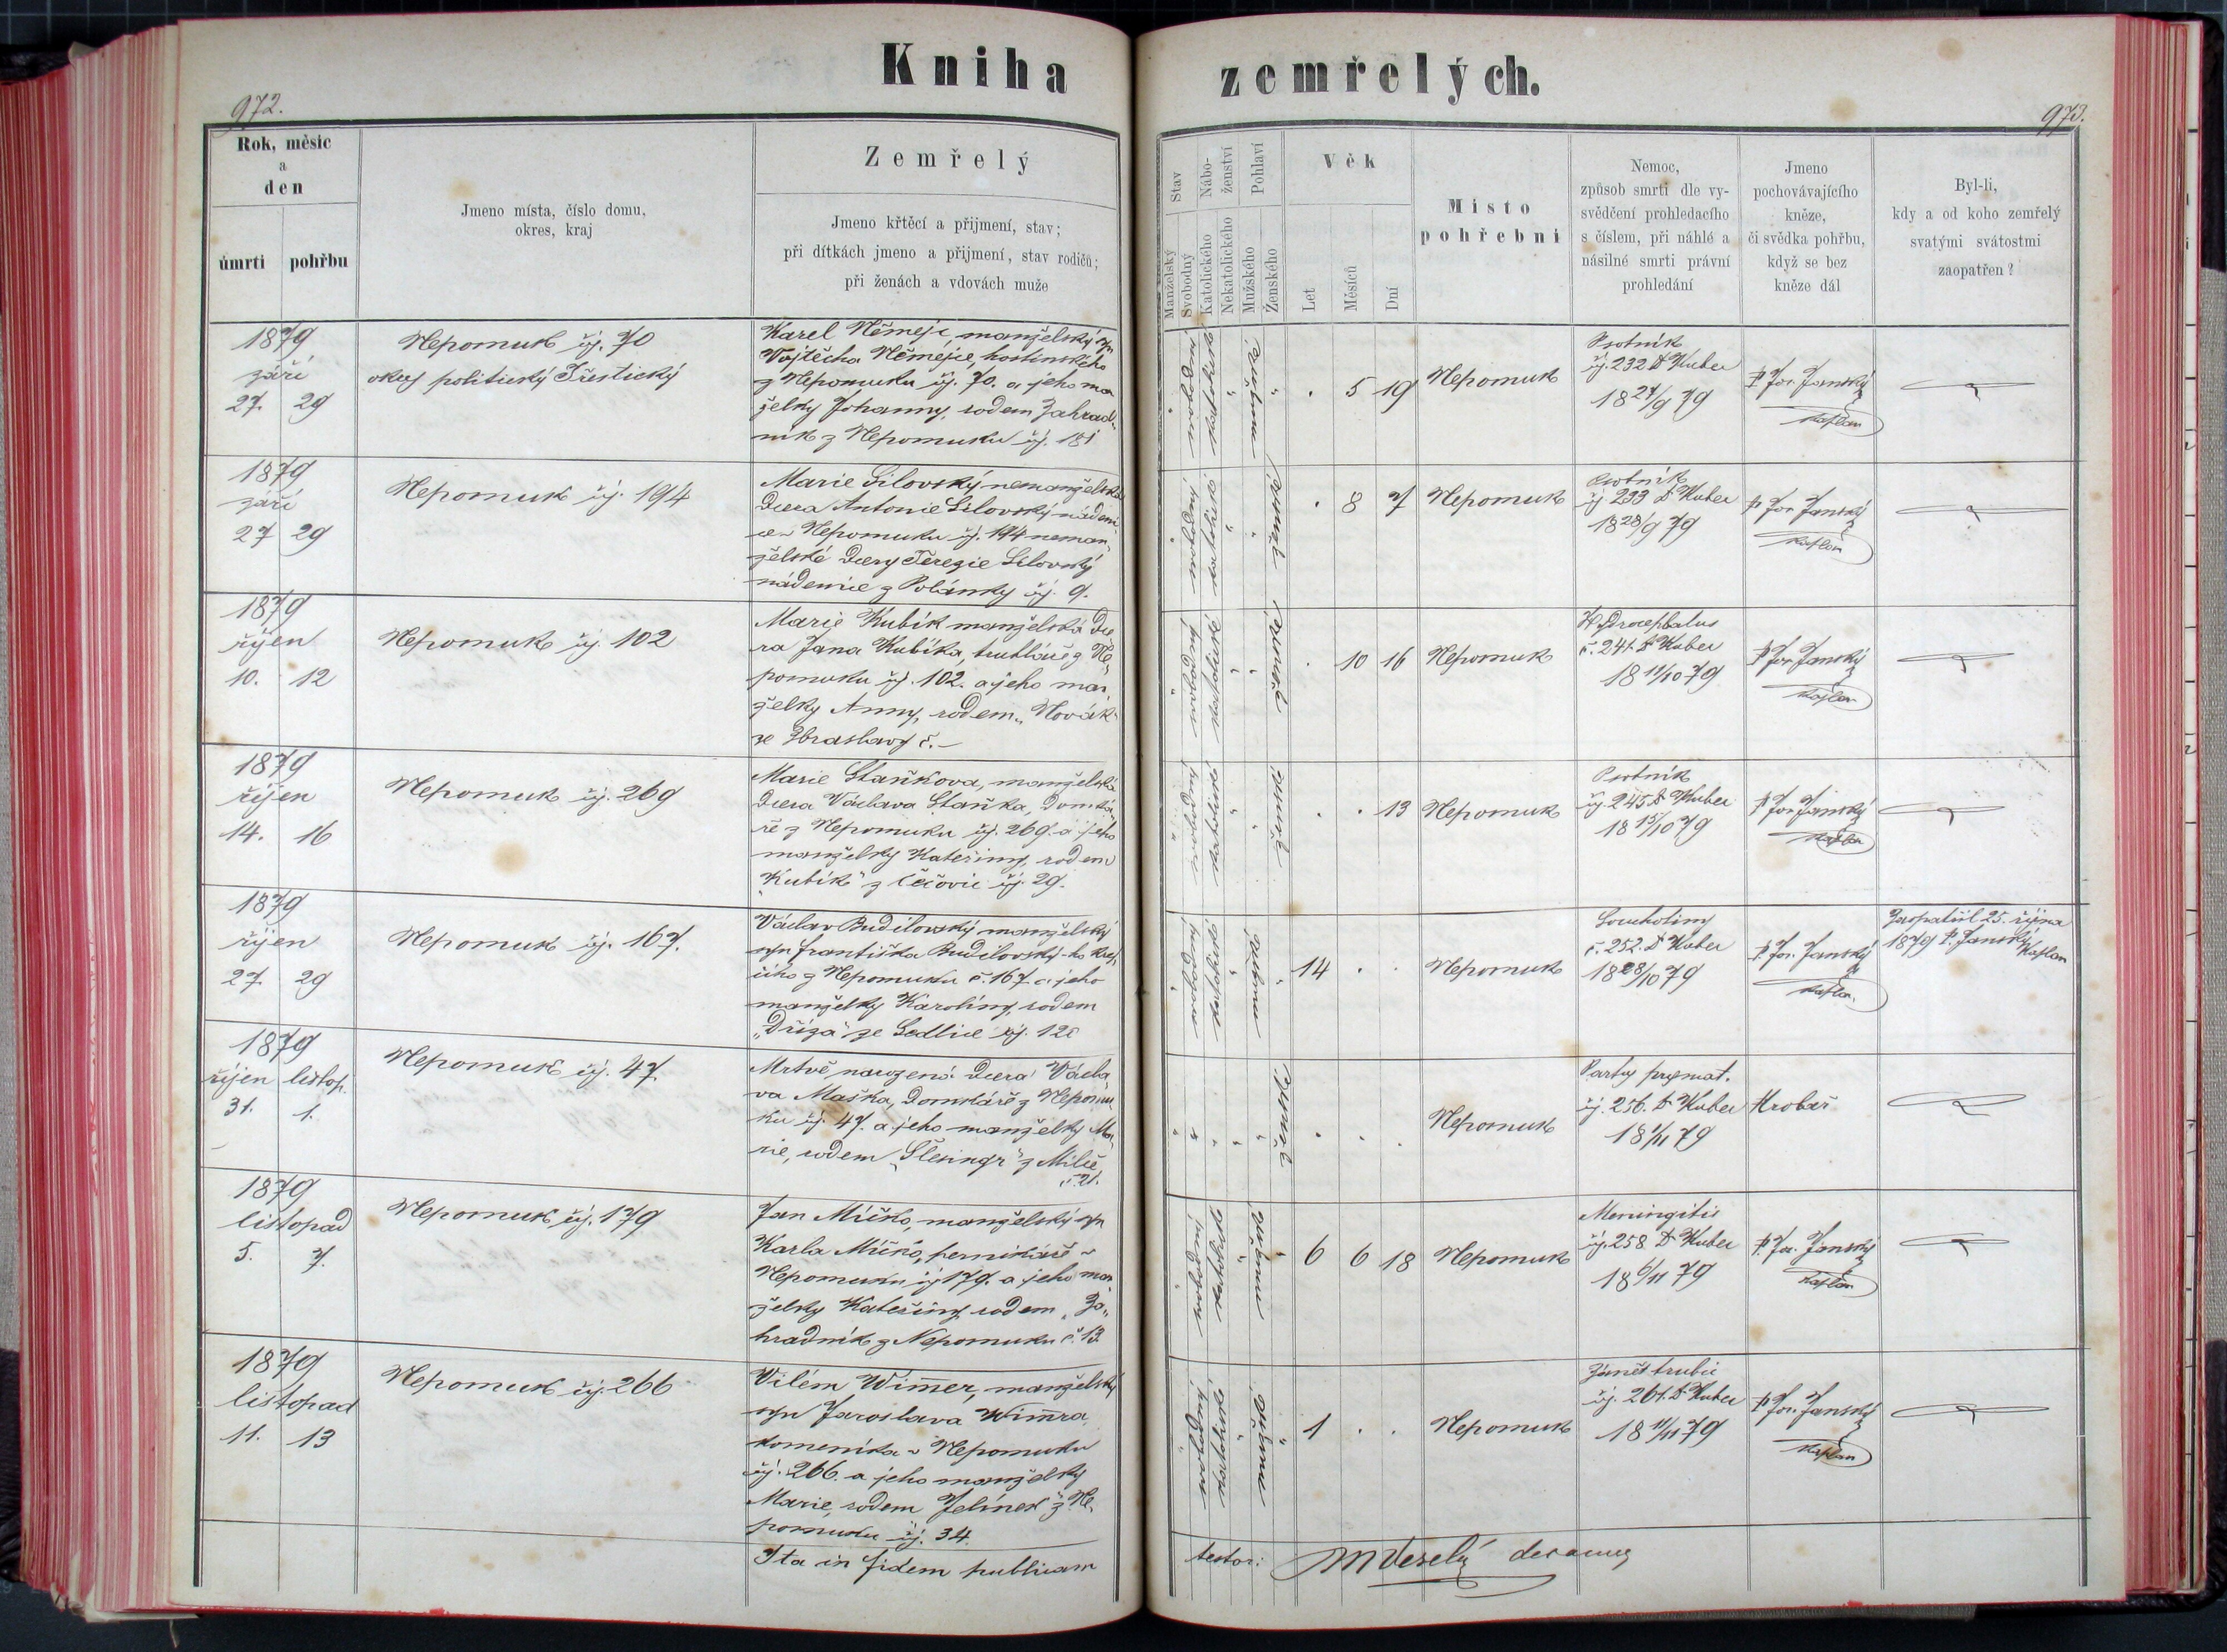 Kniha zemřelých.
972.
973.
Rok, měsíc
a
den
úmrtí pohřbu
Jmeno místa, číslo domu,
okres, kraj
Zemřelý
Jmeno křtěcí a přijmení, stav;
při dítkách jmeno a přijmení, stav rodičů;
při ženách a vdovách muže
Stav
Manželský
Svobodný
Nábo-
ženství
Katolického
Nekatolického
Pohlaví
Mužského
Ženského
Věk
Let
Měsíců
Dní
Místo
pohřební
Nemoc,
způsob smrti dle vy-
svědčení prohledacího
s číslem, při náhlé a
násilné smrti právní
prohledání
Jmeno
pochovávajícího
kněze,
či svědka pohřbu,
když se bez
kněze dál
Byl-li,
kdy a od koho zemřelý
svatými svátostmi
zaopatřen?
1879
září
27. 29
Nepomuk čj. 70
okres politický Přestický
Karel Němejc, manželský syn
Vojtěcha Němejce hostinského
z Nepomuku čj. 70. a jeho man
želky Johanny, rodem Zahrad„
ník z Nepomuku čj. 181
svobodný
katolické
mužské
5 19
Nepomuk
Psotník
čj. 232 Dr Huber
18 27/9 79
P. Jos. Janský
kaplan
1879
září
27 29
Nepomuk čj. 194
Marie Silovský nemanželská
dcera Antonie Silovský nádeni
ce v Nepomuku čj. 194 neman„
želské dcery Terezie Silovský
nádenice z Polánky čj. 9.
svobodný
katolické
ženské
8 7
Nepomuk
Psotník
čj 233 Dr Huber
18 28/9 79
P. Jos. Janský
kaplan
1879
říjen
10. 12
Nepomuk čj. 102
Marie Kubík manželská dce
ra Jana Kubíka, truhláře z Ne„
pomuku čj. 102. a jeho man„
želky Anny, rodem „Novák"
ze Zbraslavy č. –
svobodný
katolické
ženské
10 16
Nepomuk
Hydrocephalus
č. 241. Dr Huber
18 11/10 79
P. Jos. Janský
kaplan
1879
říjen
14. 16
Nepomuk čj. 269
Marie Staňkova, manželská
dcera Václava Staňka, domká„
ře z Nepomuku čj. 269. a jeho
manželky Kateřiny, rodem
„Kubík" z Čečovic čj. 29.
svobodný
katolické
ženské
13
Nepomuk
Psotník
čj. 245. Dr Huber
18 15/10 79
P. Jos. Janský
kaplan
1879
říjen
27. 29
Nepomuk čj. 167.
Václav Budilovský manželský
syn Františka Budilovský-ho krej„
čího z Nepomuku č. 167. a jeho
manželky Karoliny, rodem
„Dříza" ze Sedlice čj. 120
svobodný
katolické
mužské
14
Nepomuk
Souchotiny
č. 252. Dr Huber
18 28/10 79
P. Jos. Janský
kaplan.
Zaopatřil 25. října
1879 P. Janský
kaplan
1879
říjen listop.
31. 1.
Nepomuk čj. 47.
Mrtvě narozená dcera Václa„
va Maška, domkáře z Nepomu
ku čj. 47. a jeho manželky Ma„
rie, rodem „Šlesingr" z Milče
č. 21.
ženské
Nepomuk
Partus præmat.
čj. 256. Dr Huber
18 1/11 79
Hrobař
1879
listopad
5. 7.
Nepomuk čj. 179
Jan Míčko, manželský syn
Karla Míčko, perníkáře v
Nepomuku čj 179. a jeho man
želky Kateřiny, rodem „Za„
hradník z Nepomuku č. 13.
svobodný
katolické
mužské
6 6 18
Nepomuk
Meningitis
čj. 258 Dr Huber
18 6/11 79
P. Jos. Janský
kaplan
1879
listopad
11. 13
Nepomuk čj. 266
Vilém Wim̄er, manželský
syn Jaroslava Wim̄ra,
komeníka v Nepomuku
čj. 266. a jeho manželky
Marie, rodem Jelínek z Ne„
pomuku čj. 34.
svobodný
katolické
mužské
1
Nepomuk
Zánět trubic
čj. 261. Dr Huber
18 11/11 79
P. Jos. Janský
kaplan
Ita in fidem publicam
testor: M Veselý decanus